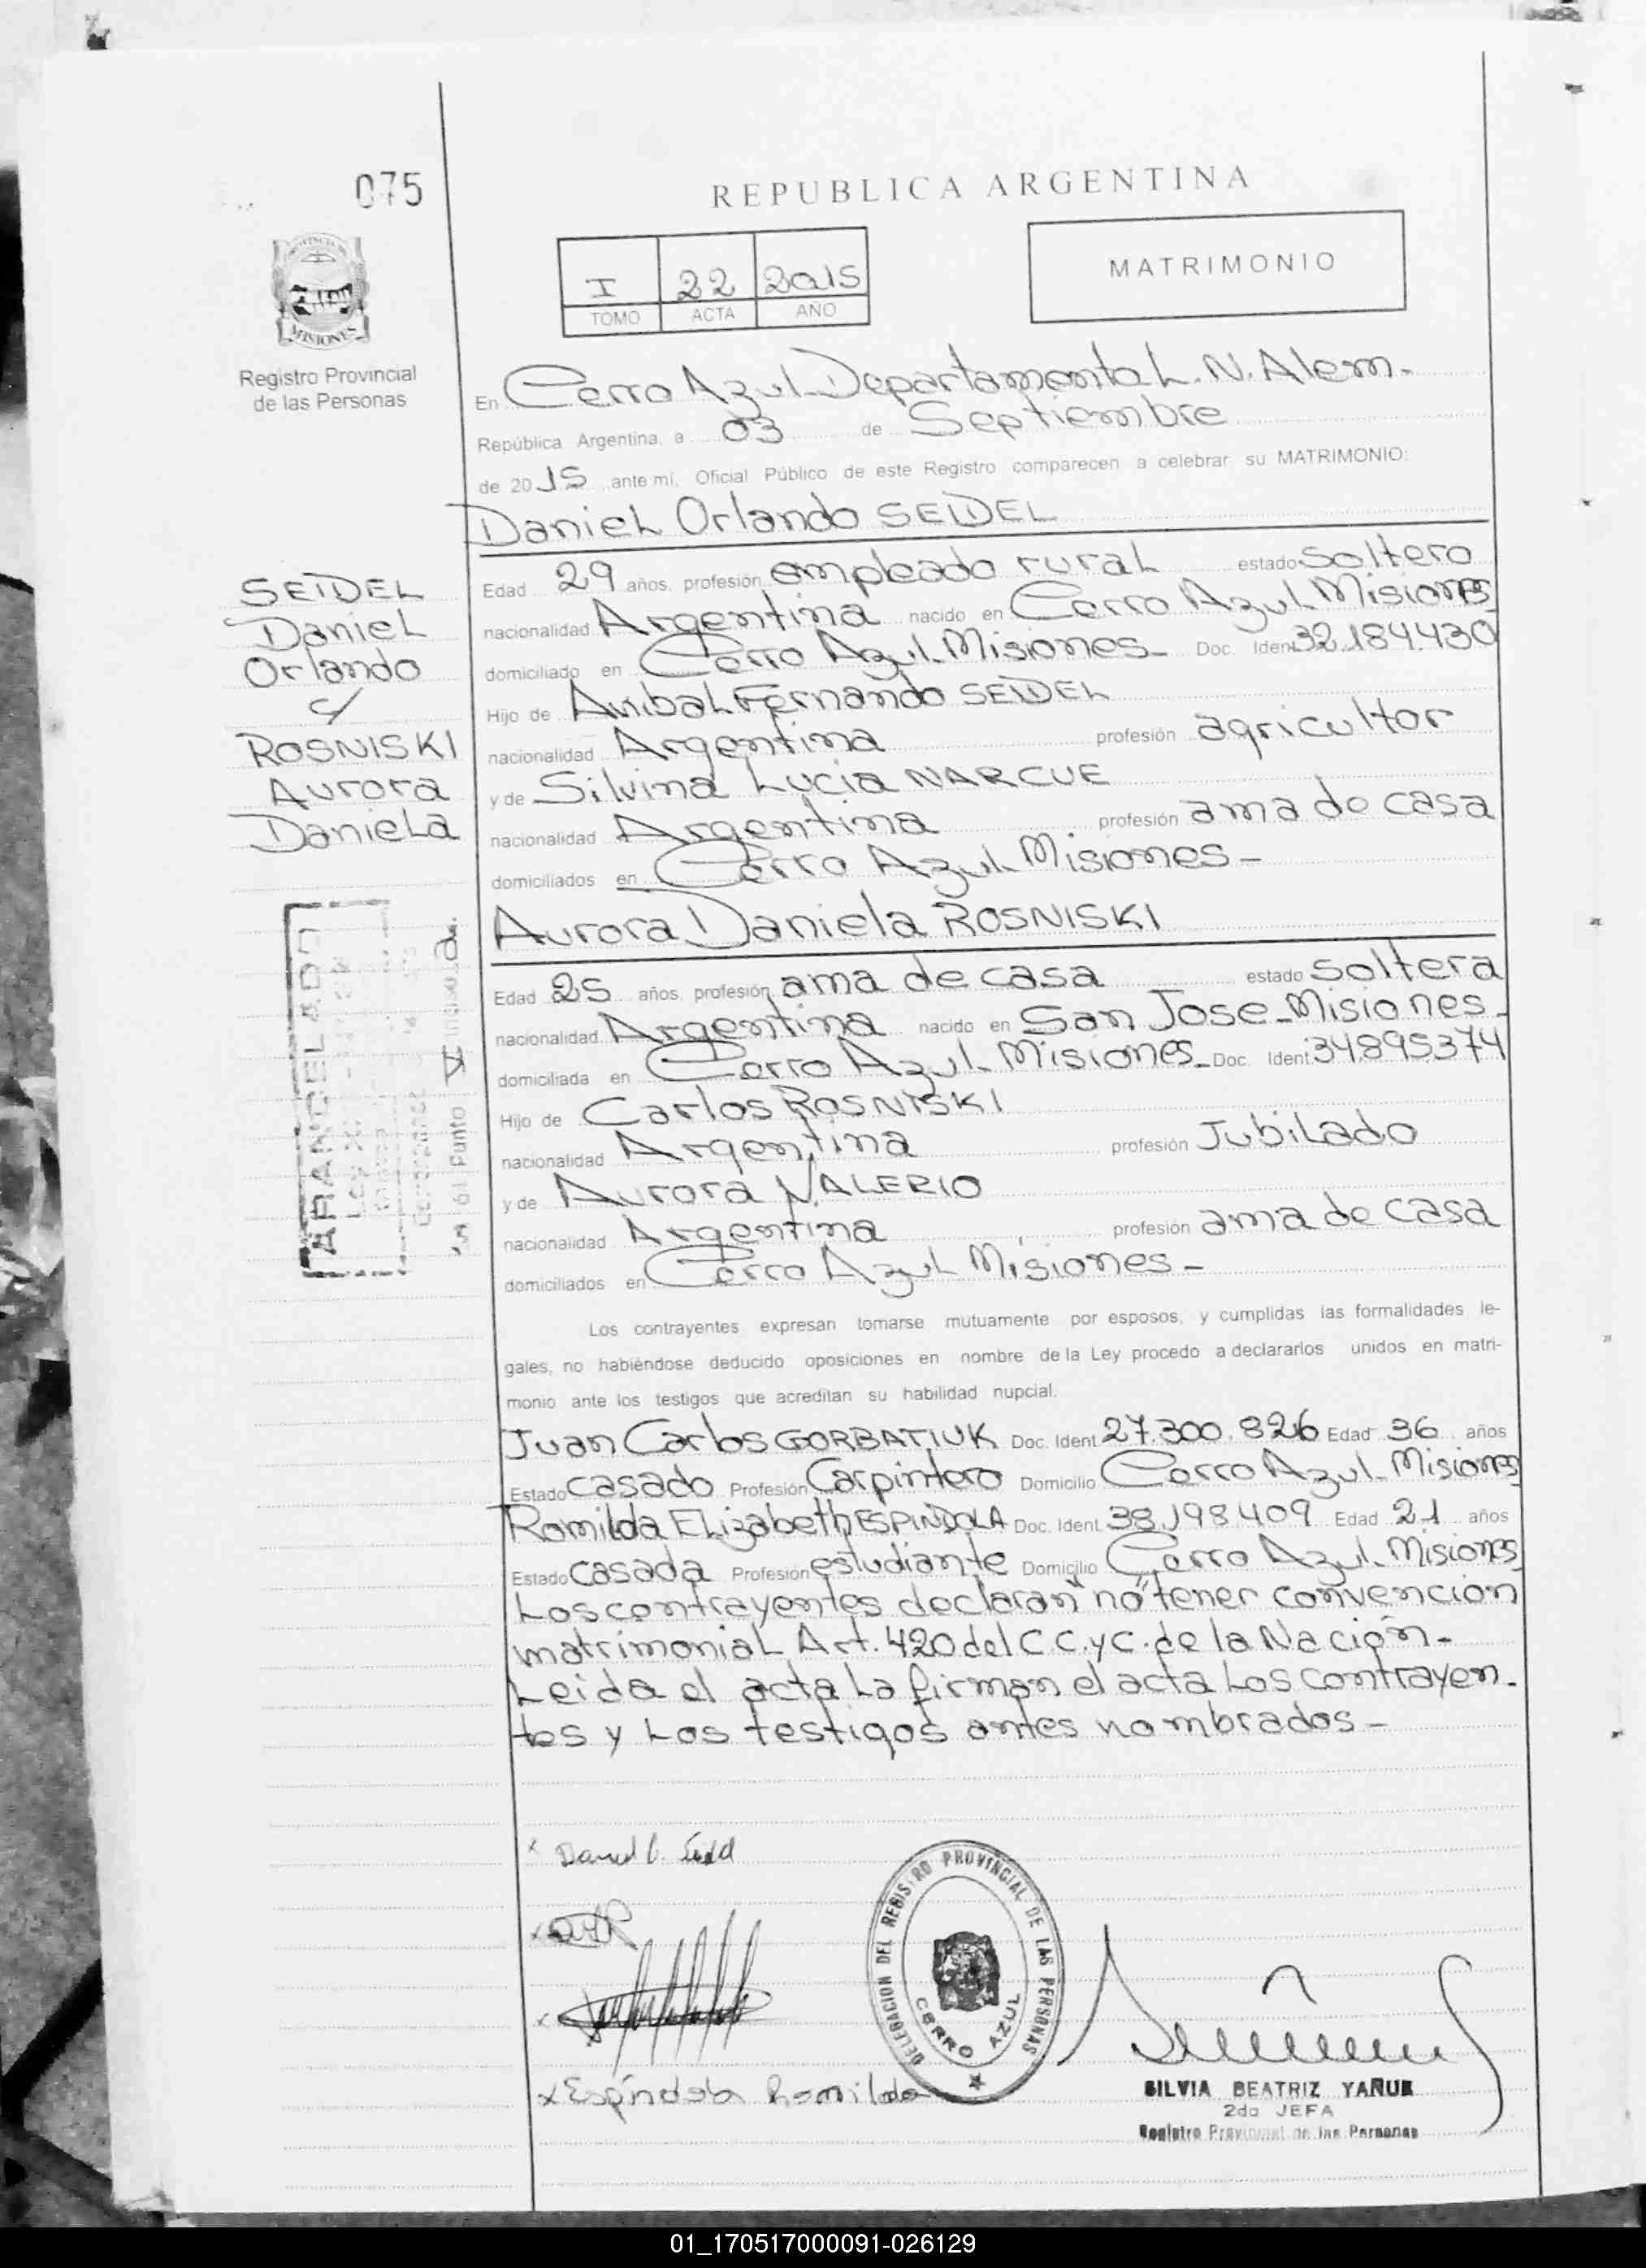 075
REPUBLICA ARGENTINA
I 22 2015
TOMO ACTA AÑO
MATRIMONIO
PROVINCIA DE
MISIONES
Registro Provincial
de las Personas
En Cerro Azul Departamental L. N. Alem.-
República Argentina, a 03 de Septiembre
de 2015 ante mí, Oficial Público de este Registro comparecen a celebrar su MATRIMONIO:
Daniel Orlando SEIDEL
Edad 29 años, profesión empleado rural estado soltero
nacionalidad Argentina nacido en Cerro Azul Misiones
domiciliado en Cerro Azul Misiones- Doc. Ident 32.184.430
Hijo de Anibal Fernando SEIDEL
nacionalidad Argentina profesión agricultor
y de Silvina Lucia NARCUE
nacionalidad Argentina profesión ama de casa
domiciliados en Cerro Azul Misiones-
SEIDEL
Daniel
Orlando
c/
ROSNISKI
Aurora
Daniela
ARANCELADO
Aurora Daniela ROSNISKI
Edad 25 años, profesión ama de casa estado soltera
nacionalidad Argentina nacido en San Jose-Misiones-
domiciliada en Cerro Azul Misiones- Doc. Ident. 34.895374
Hijo de Carlos ROSNISKI
nacionalidad Argentina profesión Jubilado
y de Aurora VALERIO
nacionalidad Argentina profesión ama de casa
domiciliados en Cerro Azul Misiones-
Los contrayentes expresan tomarse mutuamente por esposos, y cumplidas las formalidades le-
gales, no habiéndose deducido oposiciones en nombre de la Ley procedo a declararlos unidos en matri-
monio ante los testigos que acreditan su habilidad nupcial.
Juan Carlos GORBATIUK Doc. Ident. 27.300.826 Edad 36 años
Estado casado Profesión Carpintero Domicilio Cerro Azul-Misiones
Romilda Elizabeth ESPINDOLA Doc. Ident. 38.198.409 Edad 21 años
Estado casada Profesión estudiante Domicilio Cerro Azul-Misiones
Los contrayentes declaran "no" tener convencion
matrimonial Art. 420 del C.C.yC. de la Nación.-
Leida el acta la firman el acta los contrayen-
tes y los testigos antes nombrados-
x Espíndola Romilda
DELEGACION DEL REGISTRO PROVINCIAL DE LAS PERSONAS
CERRO AZUL
SILVIA BEATRIZ YAÑUK
2da JEFA
Registro Provincial de las Personas
01_170517000091-026129